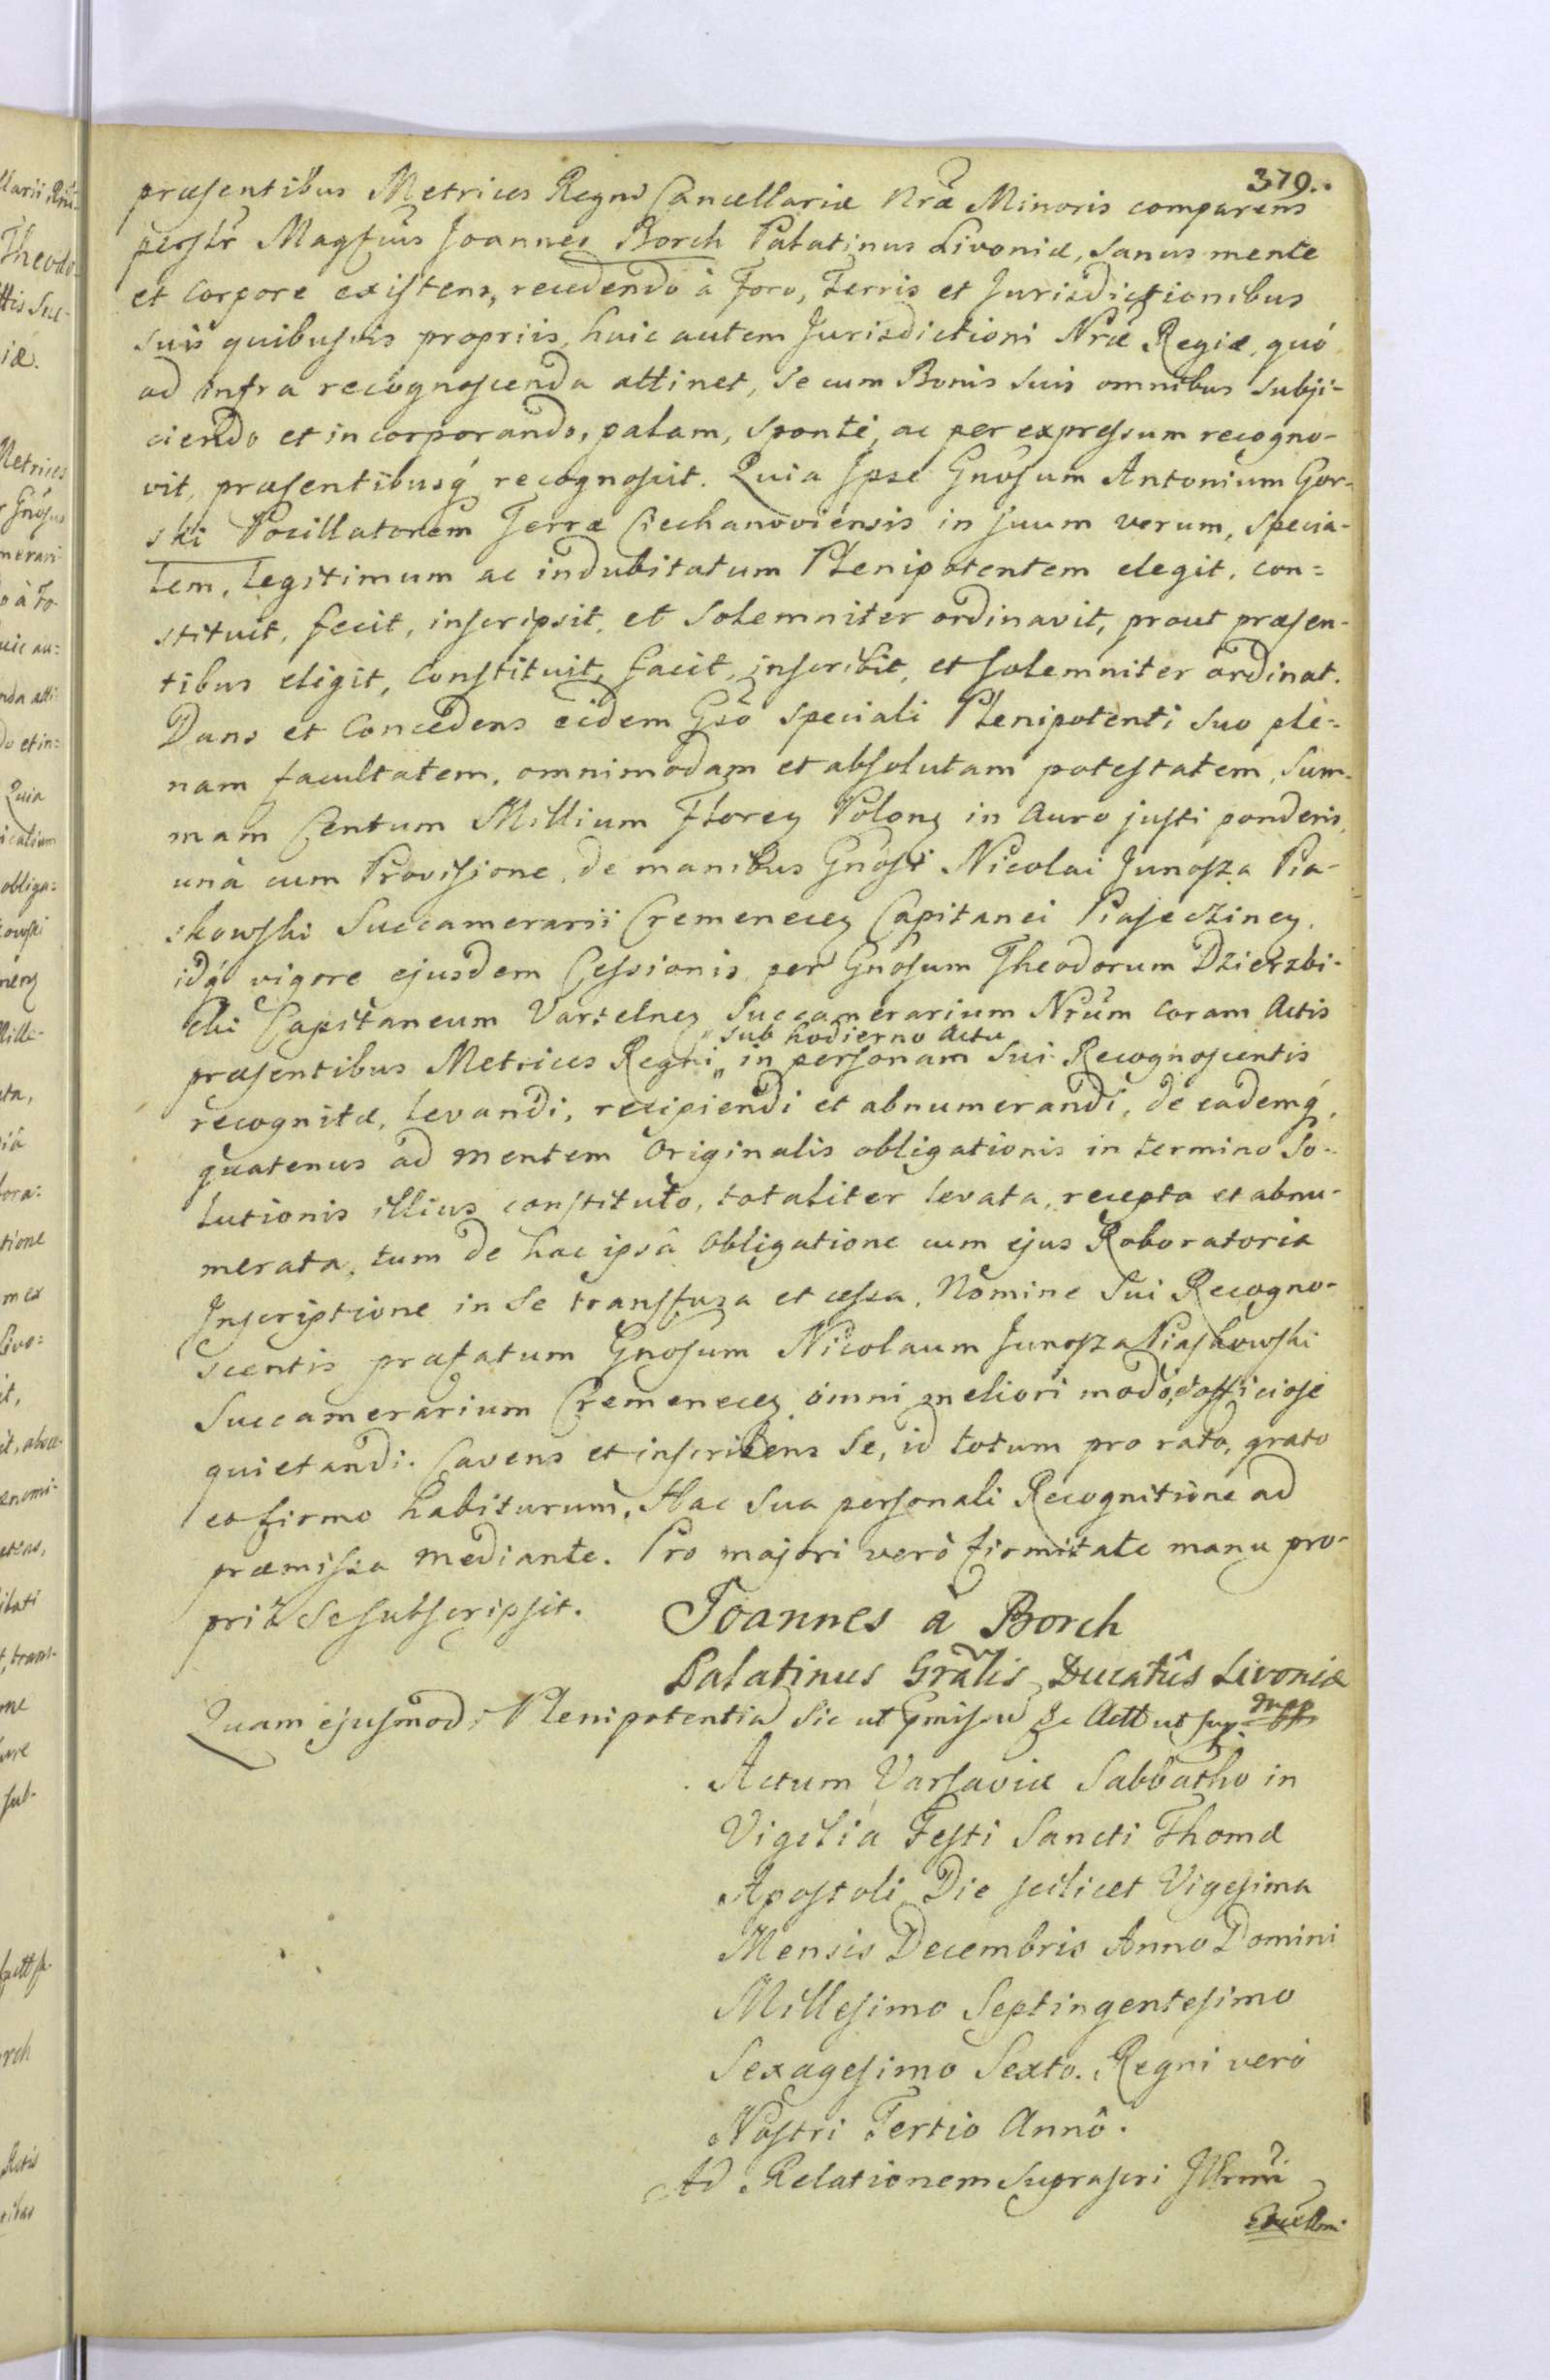 379.
præsentibus Metrices Regni Cancellariæ Nræ Minoris comparens
persłr Magfcus Joannes Borch Palatinus Livoniæ, sanus mente
et corpore existens, recedendo à Foro, Terris et Jurisdictionibus
suis quibusvis propriis, huic autem Jurisdictioni Nræ Regiæ, quó
ad infra recognoscenda attinet, se cum Bonis suis omnibus subji-
ciendo et incorporando, palam, sponte, ac per expressum recogno-
vit, præsentibusq́ recognoscit. Quia Ipse Gnosum Antonium Gor-
ski Pocillatorem Terræ Ciechanoviensis in suum verum, specia-
lem, legitimum ac indubitatum Plenipotentem elegit, con=
stituit, fecit, inscripsit, et solemniter ordinavit, prout præsen-
tibus eligit, constituit, facit, inscribit, et solemniter ordinat.
Dans et Concedens eidem Gsö speciali Plenipotenti suo ple=
nam facultatem, omnimodam et absolutam potestatem, sum-
mam Centum Millium Floreŋ Poloŋ in Auro justi ponderis,
unà cum Provisione, de manibus Gnosi Nicolai Junosza Pia-
skowski Succamerarii Cremeneceŋ Capitanei Piasecziney,
idq́ vigore ejusdem Cessionis per Gnosum Theodorum Dzierzbi-
cki Capitaneum Vartelneŋ Succamerarium Nrum coram Actis
sub hodierno Actu
præsentibus Metrices Regni „ in personam sui Recognoscentis
recognitæ, levandi, recipiendi et abnumerandi, de eademq́,
quatenus ad mentem Originalis obligationis in termino So-
lutionis illius constituto, totaliter levata, recepta et abnu-
merata, tum de hac ipsâ Obligatione cum ejus Roboratoria
Inscriptione in se transfusa et cessa, Nomine sui Recogno-
scentis præfatum Gnosum Nicolaum Junosza Piaskowski
Succamerarium Cremeneceŋ omni meliori modo, et officiose
quietandi. Cavens et inscribens se, id totum pro rato, grato
et firmo habiturum, Hac sua personali Recognitione ad
præmissa mediante. Pro majori verò firmitate manu pro-
priâ se subscripsit. Joannes à Borch
Palatinus Gralis Ducatûs Livoniæ
mpp
Quam ejusmodi Plenipotentia sic ut pmissu &c Actt ut sup.
Actum Varsaviæ Sabbatho in
Vigilia Festi Sancti Thomæ
Apostoli Die scilicet Vigesima
Mensis Decembris Anno Domini
Millesimo Septingentesimo
Sexagesimo Sexto. Regni verò
Nostri Tertio Annô.
Ad Relationem suprascri Illrmi